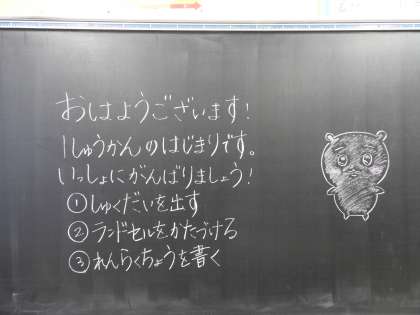 おはようございます!
1しゅうかんのはじまりです。
いっしょにがんばりましょう!
①しゅくだいを出す
②ランドセルをかたづける
③れんらくちょうを書く